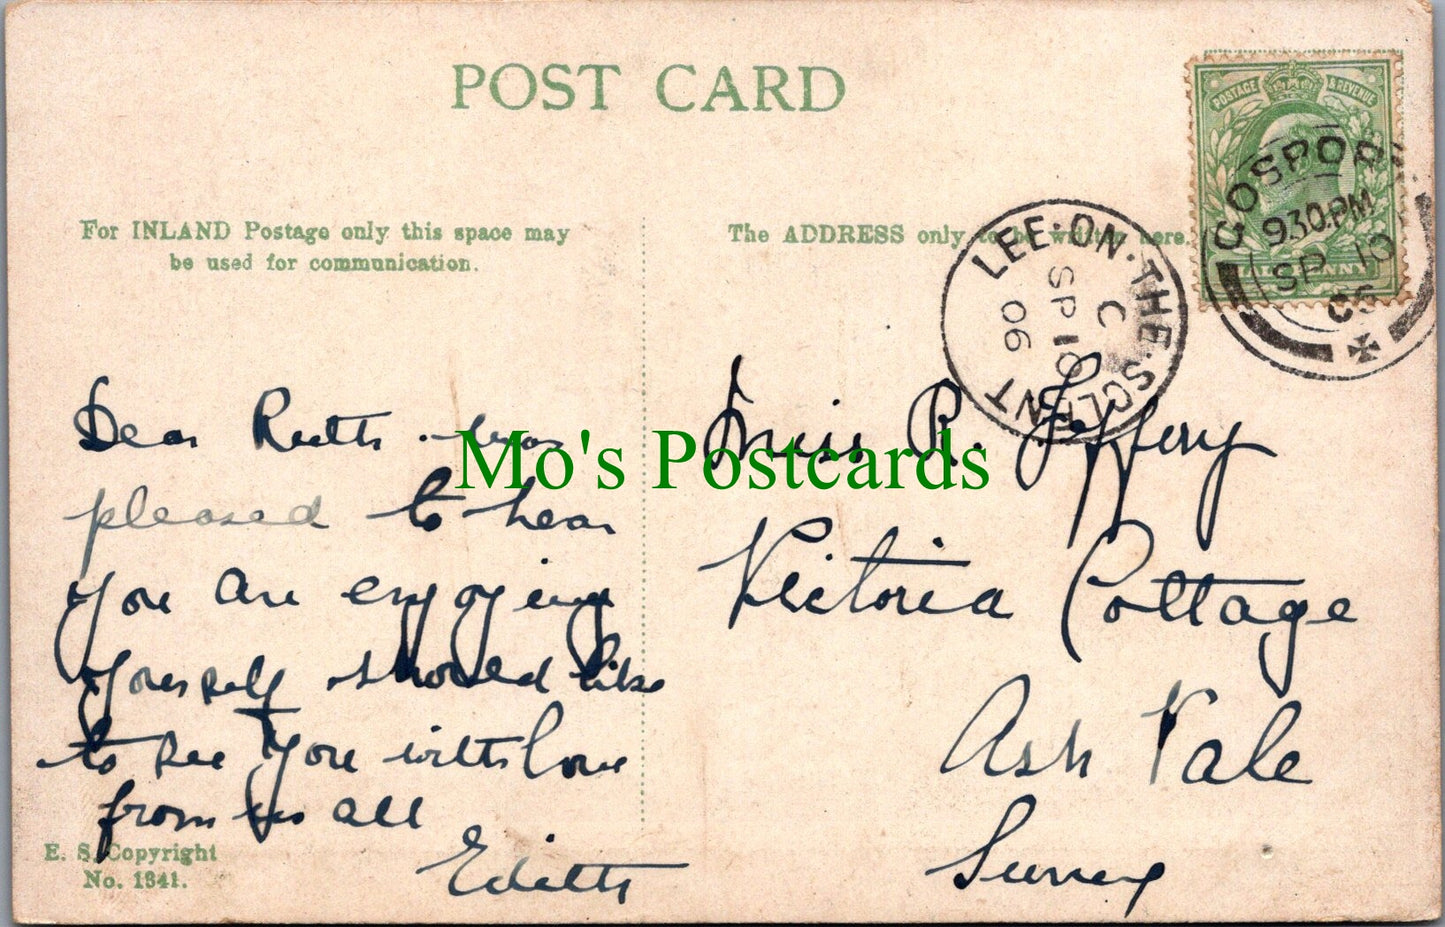 POST CARD
For INLAND Postage only this space may
be used for communication.
The ADDRESS only to be written here.
POSTAGE & REVENUE
HALFPENNY
GOSPORT
9.30.PM
SP 10
06
LEE-ON-THE-SOLENT
C
SP 10
06
Dear Ruth. was
pleased to hear
you are enjoying
yourself should like
to see you with love
from us all
Edith
Miss R. Jeffery
Victoria Cottage
Ash Vale
Surrey
E. S. Copyright
No. 1341.
Mo's Postcards